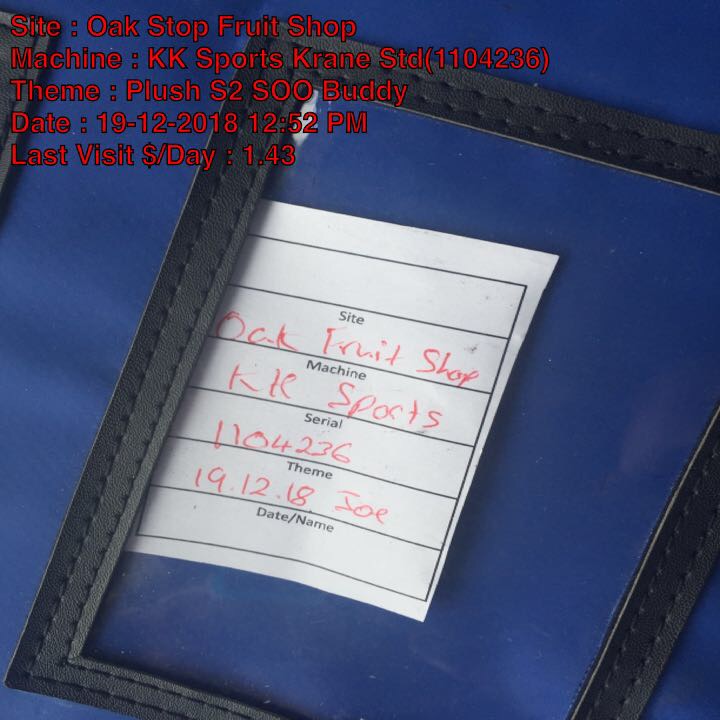 Site : Oak Stop Fruit Shop
Machine : KK Sports Krane Std(1104236)
Theme : Plush S2 SOO Buddy
Date : 19-12-2018 12:52 PM
Last Visit $/Day : 1.43
Site
Oak Fruit Shop
Machine
KK Sports
Serial
1104236
Theme
19.12.18 Joe
Date/Name